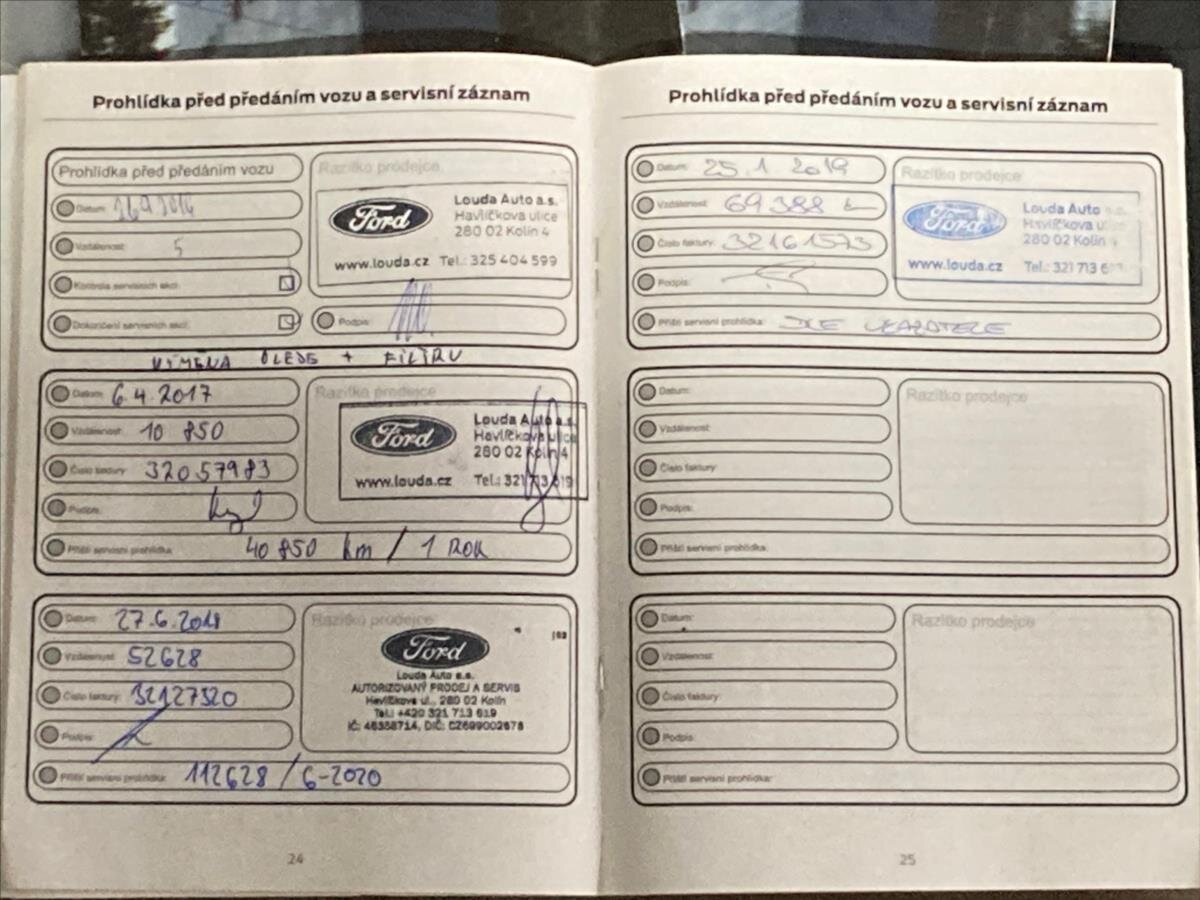 Prohlídka před předáním vozu a servisní záznam
Prohlídka před předáním vozu
Datum:
Vzdálenost: 5
Kontrola servisních akcí
Dokončení servisních akcí
Razítko prodejce
Ford
Louda Auto a.s.
Havlíčkova ulice
280 02 Kolín 4
www.louda.cz Tel.: 325 404 599
Podpis:
VÝMĚNA OLEJE + FILTRU
Datum: 6.4.2017
Vzdálenost: 10 850
Číslo faktury: 32057983
Podpis:
Razítko prodejce
Ford
Louda Auto a.s.
Havlíčkova ulice
280 02 Kolín 4
www.louda.cz Tel.: 321 713 619
Příští servisní prohlídka: 40 850 km / 1 ROK
Datum: 27.6.2018
Vzdálenost: 52628
Číslo faktury: 32127520
Podpis:
Razítko prodejce
Ford
Louda Auto a.s.
AUTORIZOVANÝ PRODEJ A SERVIS
Havlíčkova ul., 280 02 Kolín
Tel.: +420 321 713 619
IČ: 46358714, DIČ: CZ699002678
Příští servisní prohlídka: 112628 / 6-2020
24
Prohlídka před předáním vozu a servisní záznam
Datum: 25.1.2019
Vzdálenost: 69388
Číslo faktury: 32161573
Podpis:
Razítko prodejce
Ford
Louda Auto a.s.
280 02 Kolín 4
www.louda.cz Tel.: 321 713
Příští servisní prohlídka: DLE UKAZATELE
Datum:
Vzdálenost:
Číslo faktury:
Podpis:
Razítko prodejce
Příští servisní prohlídka:
Datum:
Vzdálenost:
Číslo faktury:
Podpis:
Razítko prodejce
Příští servisní prohlídka:
25